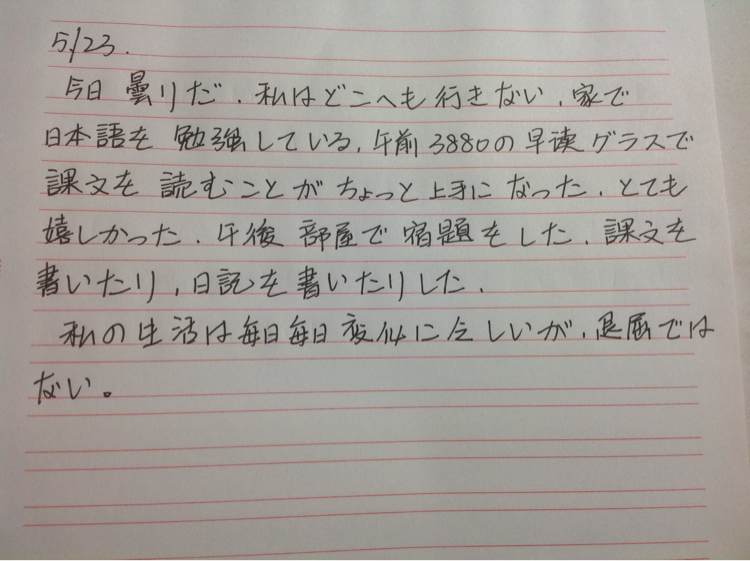 5/23.
今日曇りだ.私はどこへも行きない.家で
日本語を勉強している.午前3880の早读グラスで
課文を読むことがちょっと上手になった.とても
嬉しかった.午後部屋で宿題をした.課文を
書いたり,日記を書いたりした.
私の生活は毎日毎日変似にしいが.退屈では
ない。